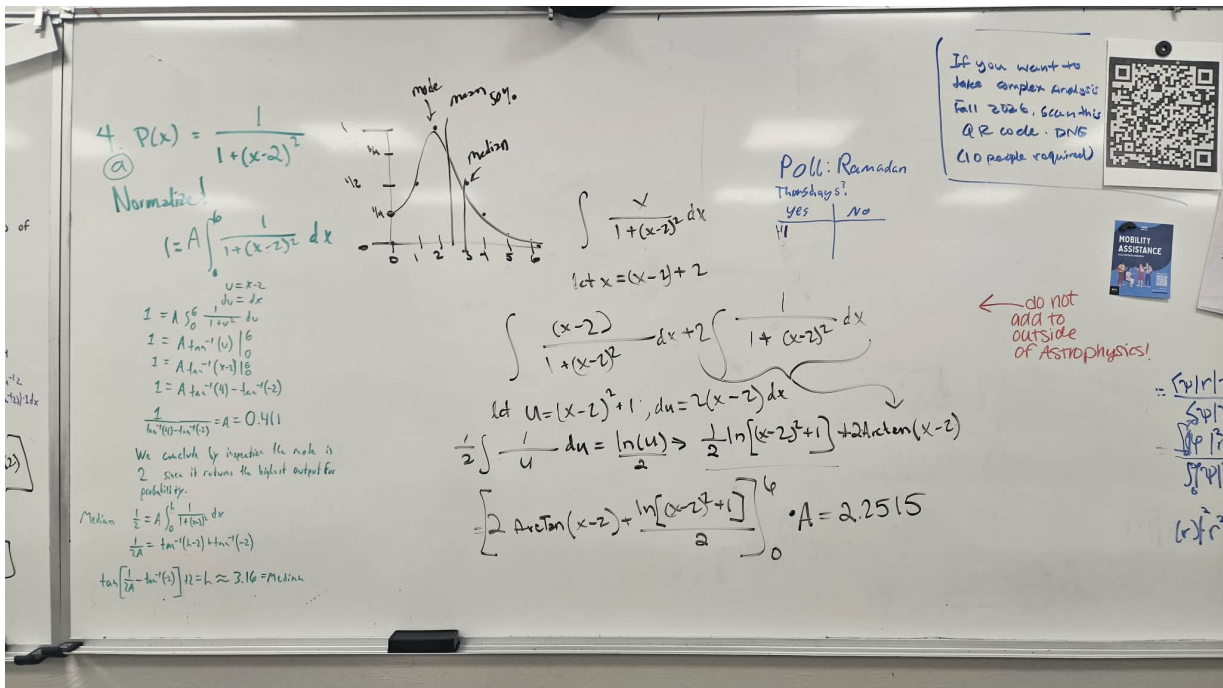 4. P(x) = 1/(1+(x-2)²)
(a)
Normalize!
1 = A ∫₀⁶ 1/(1+(x-2)²) dx
u = x-2
du = dx
1 = A ∫₀⁶ 1/(1+u²) du
1 = A tan⁻¹(u) |₀⁶
1 = A tan⁻¹(x-2) |₀⁶
1 = A tan⁻¹(4) - tan⁻¹(-2)
1/(tan⁻¹(4) - tan⁻¹(-2)) = A = 0.411
We conclude by inspection the mode is
2 since it returns the highest output for
probability.
Median 1/2 = A ∫₀ʰ 1/(1+(x-2)²) dx
1/2A = tan⁻¹(h-2) + tan⁻¹(-2)
tan[1/2A - tan⁻¹(-2)] + 2 = h ≈ 3.16 = Median
mode
mean 50%
median
1
3/4
1/2
1/4
0 1 2 3 4 5 6
∫ x/(1+(x-2)²) dx
let x = (x-2) + 2
∫ (x-2)/(1+(x-2)²) dx + 2 ∫ 1/(1+(x-2)²) dx
let u = (x-2)² + 1, du = 2(x-2) dx
1/2 ∫ 1/u du = ln(u)/2 ⇒ 1/2 ln[(x-2)²+1] + 2Arctan(x-2)
= [2 ArcTan(x-2) + ln[(x-2)²+1]/2]₀⁶ • A = 2.2515
Poll: Ramadan
Thursdays?
yes No
If you want to
take complex Analysis
Fall 2026, scan this
QR code. DNE
(10 people required)
MOBILITY
ASSISTANCE
← do not
add to
outside
of Astrophysics!
of